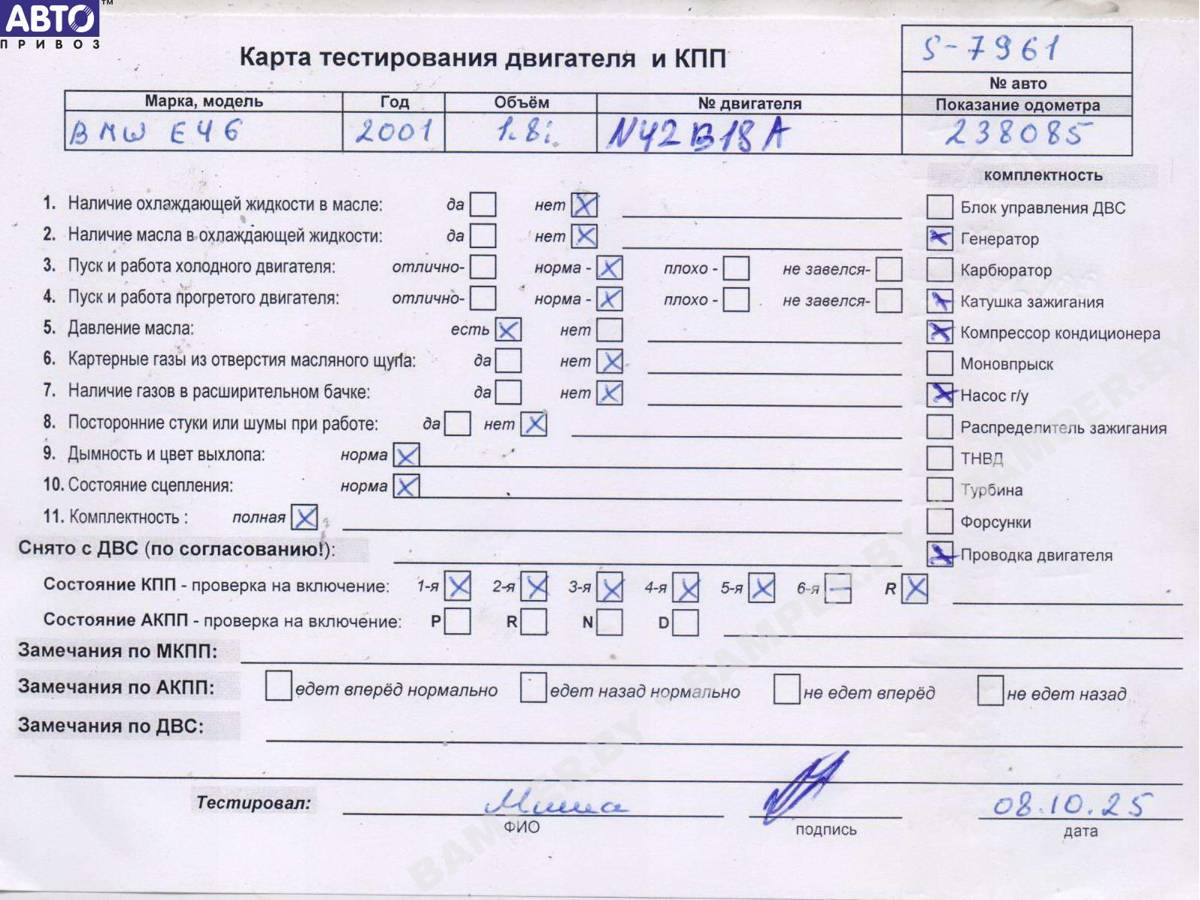 АВТО™
ПРИВОЗ
Карта тестирования двигателя и КПП
S-7961
№ авто
Марка, модель Год Объём № двигателя Показание одометра
BMW E46 2001 1.8i N42B18A 238085
комплектность
1. Наличие охлаждающей жидкости в масле: да нет X
Блок управления ДВС
2. Наличие масла в охлаждающей жидкости: да нет X
X Генератор
3. Пуск и работа холодного двигателя: отлично- норма - X плохо - не завелся-
Карбюратор
4. Пуск и работа прогретого двигателя: отлично- норма - X плохо - не завелся-
X Катушка зажигания
5. Давление масла: есть X нет
X Компрессор кондиционера
6. Картерные газы из отверстия масляного щупа: да нет X
Моновпрыск
7. Наличие газов в расширительном бачке: да нет X
X Насос г/у
8. Посторонние стуки или шумы при работе: да нет X
Распределитель зажигания
9. Дымность и цвет выхлопа: норма X
ТНВД
10. Состояние сцепления: норма X
Турбина
11. Комплектность : полная X
Форсунки
Снято с ДВС (по согласованию!):
X Проводка двигателя
Состояние КПП - проверка на включение: 1-я X 2-я X 3-я X 4-я X 5-я X 6-я — R X
Состояние АКПП - проверка на включение: P R N D
Замечания по МКПП:
Замечания по АКПП: едет вперёд нормально едет назад нормально не едет вперёд не едет назад
Замечания по ДВС:
Тестировал: Миша 08.10.25
ФИО подпись дата
BAMPER.BY BAMPER.BY BAMPER.BY